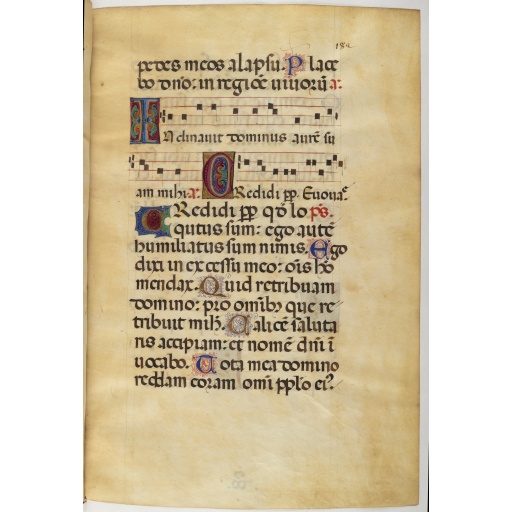 182
pedes meos a lapsu. Place
bo dño: in regiõe uiuorũ a.
Inclinauit dominus aurẽ su
am mihi. a. Credidi pp. Euouae.
Credidi pp qð lo ps.
qutus sum: ego autẽ
humiliatus sum nimis. Ego
dixi in excessu meo: oĩs hõ
mendax. Quid retribuam
domino: pro omibꝫ que re
tribuit mihi. Calicẽ saluta
ris accipiam: et nomẽ dñi ĩ
uocabo. Uota mea domino
reddam coram omi pplo ei⁹